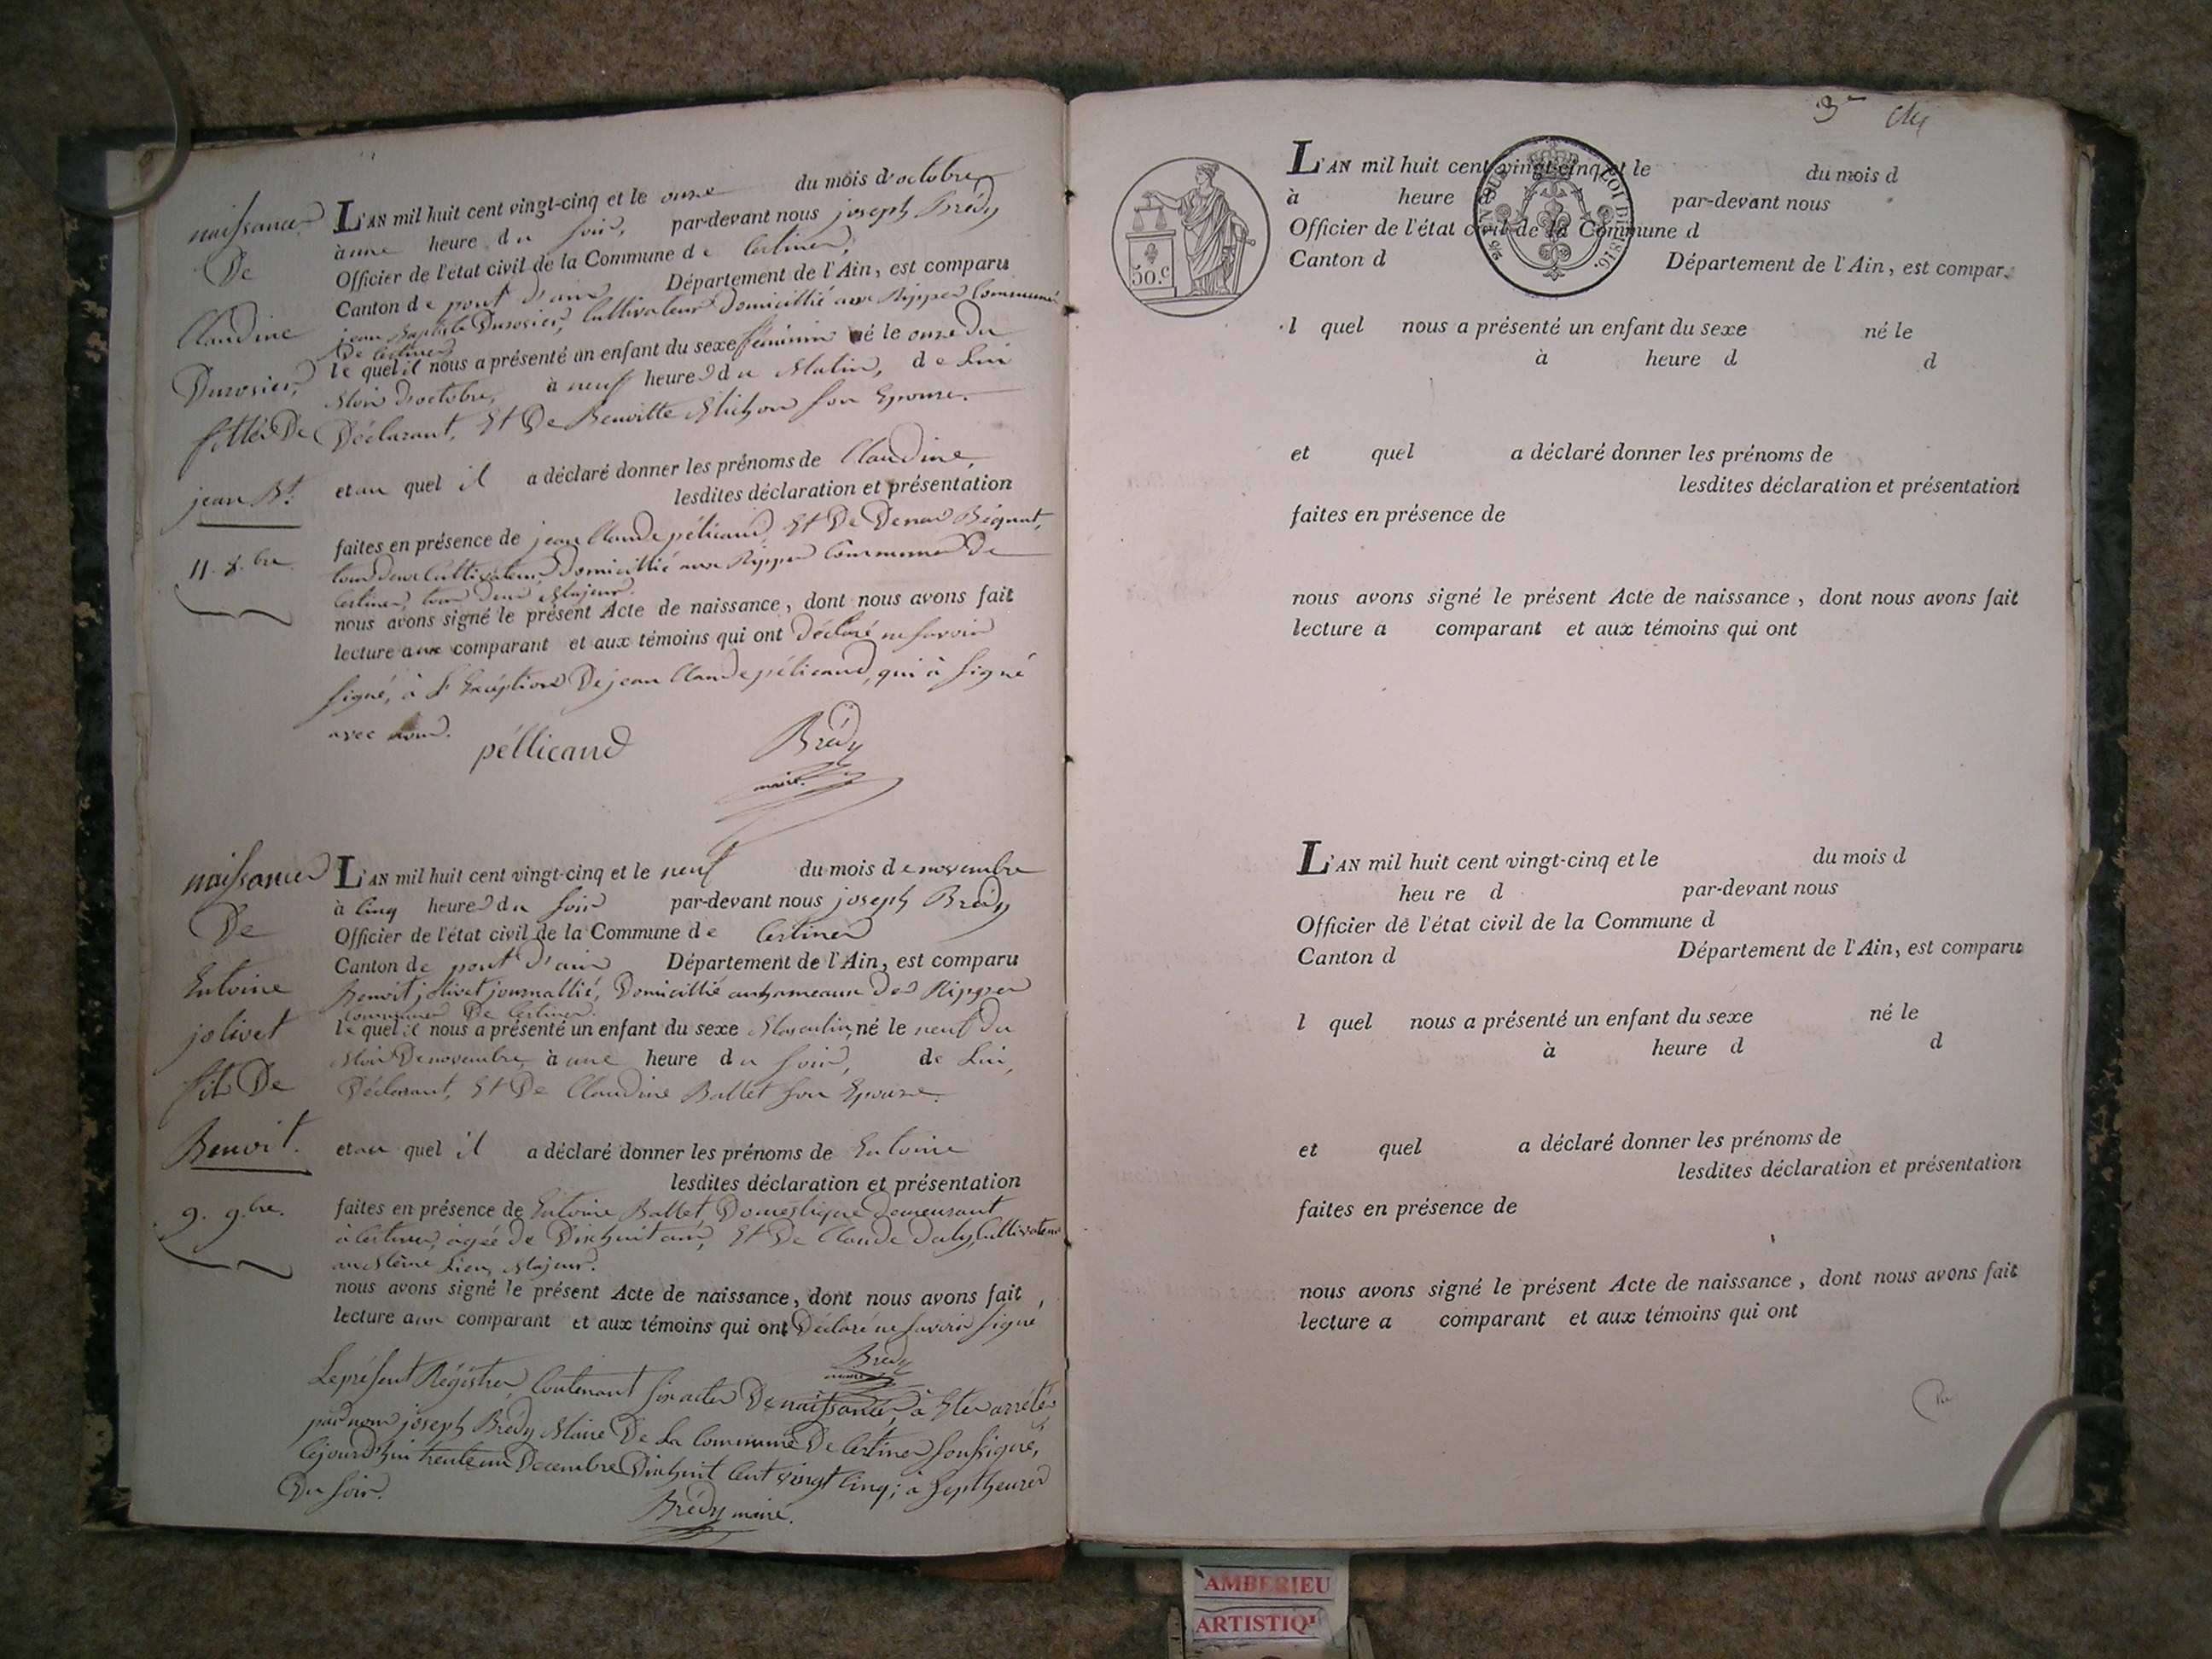 naissance
De
Claudine
Durosier,
fille De
jean Bte.
11. 8.bre
L'AN mil huit cent vingt-cinq et le onze du mois d'octobre
à une heure du soir, par-devant nous joseph Brédy
Officier de l'état civil de la Commune de Certines,
Canton de pont d'ain Département de l'Ain, est comparu
jean Baptiste Durosier, Cultivateur Domicillié aux Rippes Commune
De Certines
le quel il nous a présenté un enfant du sexe féminin né le onze du
Mois d'octobre, à neuf heures du Matin, de Lui
Déclarant, Et De Benoitte Michon son Epouse.
et au quel il a déclaré donner les prénoms de Claudine,
lesdites déclaration et présentation
faites en présence de jean Claude pélicand, Et De Denis Béguat,
tous deux Cultivateurs Domicillié aux Rippes Commune De
Certines, tous deux Majeurs.
nous avons signé le présent Acte de naissance, dont nous avons fait
lecture aux comparant et aux témoins qui ont Déclaré ne savoir
signé, à L'Excéption De jean Claude pélicand, qui à signé
avec nous.
péllicand
Brédy
maire.
naissance
De
Entoine
jolivet
fils De
Benoit.
9. 9.bre.
L'AN mil huit cent vingt-cinq et le neuf du mois de novembre
à Cinq heures du soir par-devant nous joseph Brédy
Officier de l'état civil de la Commune de Certines
Canton de pont d'ain Département de l'Ain, est comparu
Benoit jolivet journallié, Domicillié au hameaux Des Rippes
Commune De Certines.
le quel il nous a présenté un enfant du sexe Masculin, né le neuf Du
Mois De novembre, à une heure du soir, de Lui,
Déclarant, Et De Claudine Ballet son Epouse.
et au quel il a déclaré donner les prénoms de Entoine
lesdites déclaration et présentation
faites en présence de Entoine Ballet Domestique demeurant
à Certines, agée de Dixhuit ans, Et De Claude Daly, Cultivateur
au Même Lieu, Majeur.
nous avons signé le présent Acte de naissance, dont nous avons fait
lecture aux comparant et aux témoins qui ont Déclaré ne savoir signé
Brédy
maire
Le présent Régistre, Contenant six actes De naissance, à Eté arrété
par nous joseph Brédy Maire De La Commune De Certines soussigné,
Cejourd'hui trente un Decembre Dixhuit Cent vingt Cinq; à sept heures
Du soir.
Brédy maire.
3
50.C
LOI DE 1816.
L'AN mil huit cent vingt-cinq et le du mois d
à heure d par-devant nous
Officier de l'état civil de la Commune d
Canton d Département de l'Ain, est compar
l quel nous a présenté un enfant du sexe né le
à heure d d
et quel a déclaré donner les prénoms de
lesdites déclaration et présentation
faites en présence de
nous avons signé le présent Acte de naissance, dont nous avons fait
lecture a comparant et aux témoins qui ont
L'AN mil huit cent vingt-cinq et le du mois d
heu re d par-devant nous
Officier de l'état civil de la Commune d
Canton d Département de l'Ain, est comparu
l quel nous a présenté un enfant du sexe né le
à heure d d
et quel a déclaré donner les prénoms de
lesdites déclaration et présentation
faites en présence de
nous avons signé le présent Acte de naissance, dont nous avons fait
lecture a comparant et aux témoins qui ont
AMBERIEU
ARTISTIQ